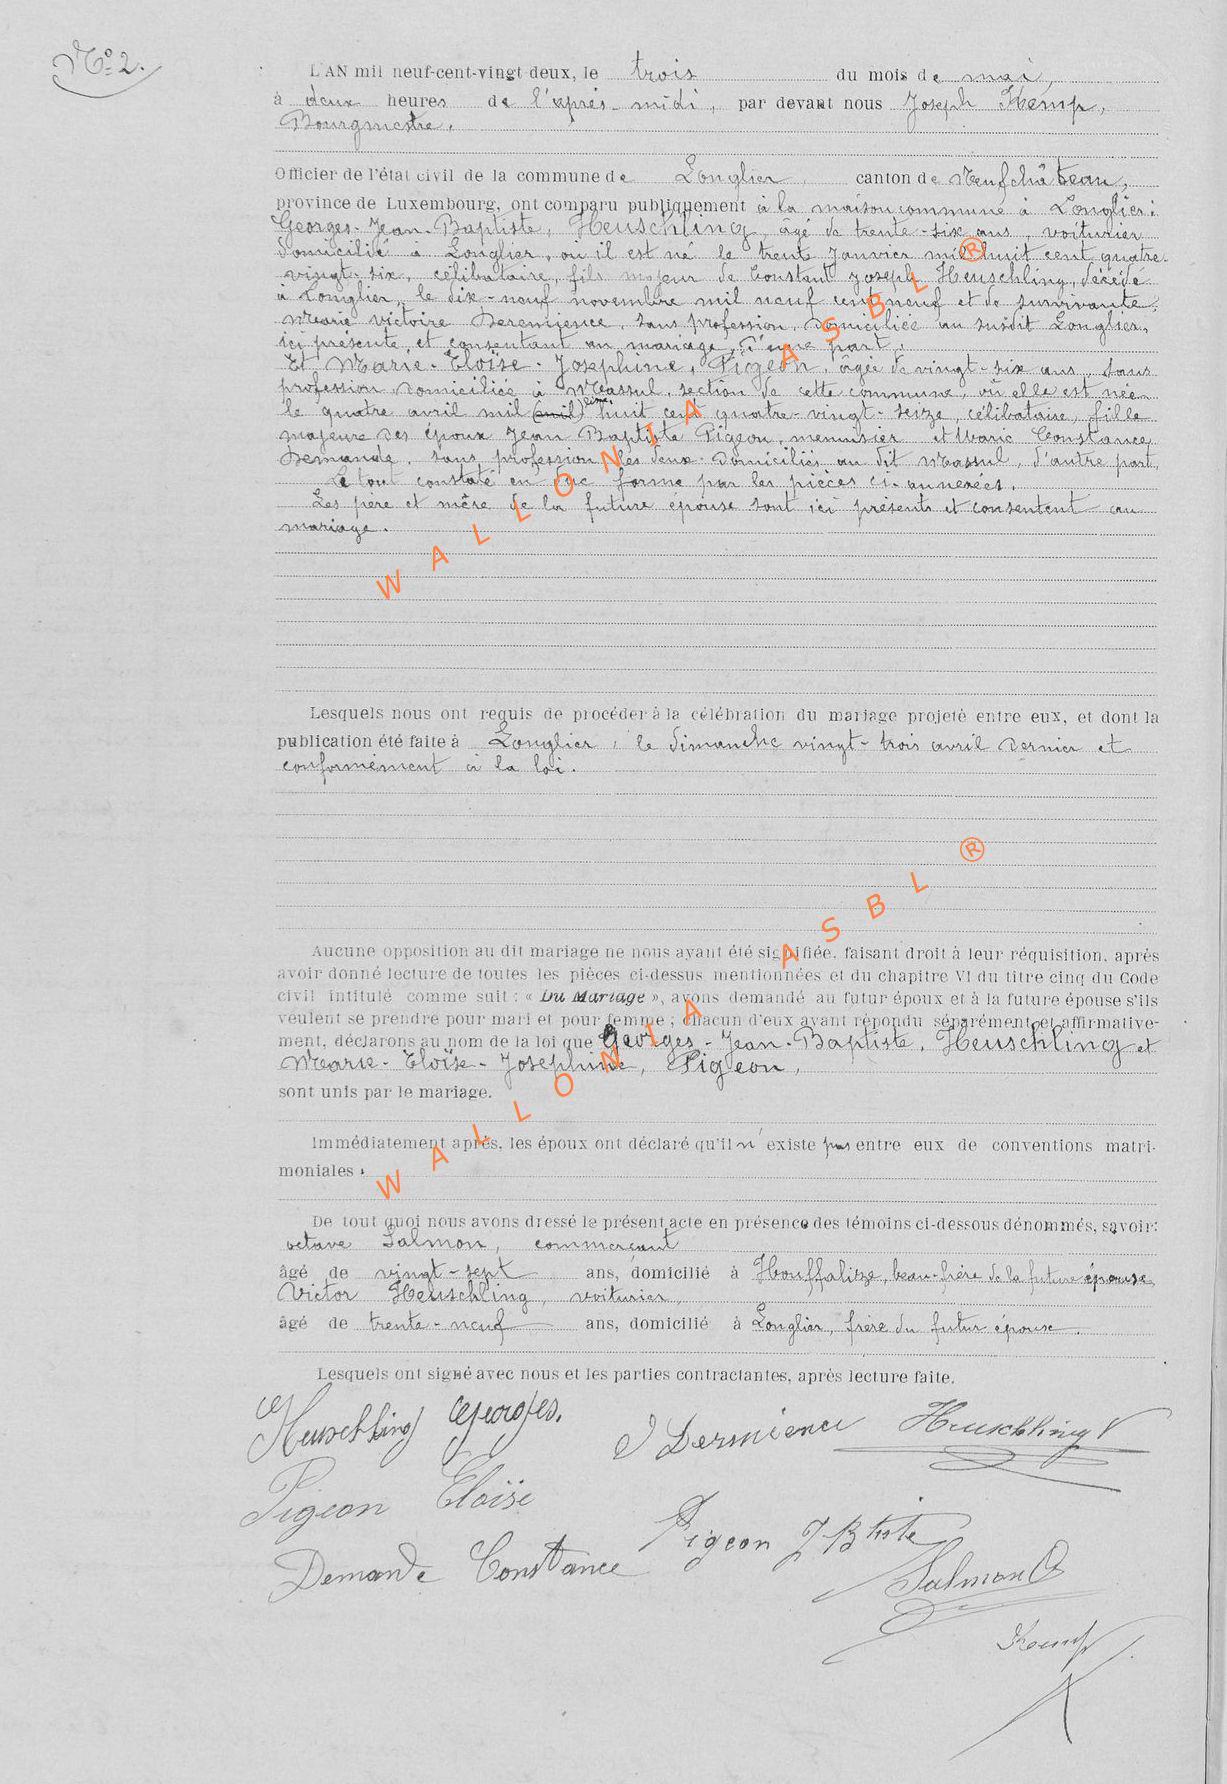 N° 2.
L'AN mil neuf-cent-vingt deux, le trois du mois de mai,
à deux heures de l'après-midi, par devant nous Joseph Kemp,
Bourgmestre.
Officier de l'état civil de la commune de Longlier, canton de Neufchâteau,
province de Luxembourg, ont comparu publiquement à la maison commune à Longlier:
Georges-Jean-Baptiste, Heuschling, âgé de trente-six ans, voiturier
domicilié à Longlier, où il est né le trente Janvier mil huit cent quatre-
vingt-six, célibataire, fils majeur de Constant Joseph Heuschling, décédé
à Longlier, le dix-neuf novembre mil neuf cent neuf et de survivante,
Marie Victoire, sans profession, domiciliée au susdit Longlier,
ici présente et consentant au mariage, d'une part.
Et Marie-Eloïse-Josephine, Pigeon, âgée de vingt-six ans, sans
profession domiciliée à Massul, section de cette commune, où elle est née
le quatre avril mil (mil) huit cent quatre-vingt-seize, célibataire, fille
majeure des époux Jean Baptiste Pigeon, menuisier et Marie Constance
Demande, sans profession, les deux domiciliés au dit Massul, d'autre part,
Le tout constaté en due forme par les pièces ci-annexées.
Les père et mère de la future épouse sont ici présents et consentent au
mariage.
Lesquels nous ont requis de procéder à la célébration du mariage projeté entre eux, et dont la
publication été faite à Longlier, le dimanche vingt-trois avril dernier et
conformément à la loi.
Aucune opposition au dit mariage ne nous ayant été signifiée, faisant droit à leur réquisition, après
avoir donné lecture de toutes les pièces ci-dessus mentionnées et du chapitre VI du titre cinq du Code
civil intitulé comme suit : « Du Mariage », avons demandé au futur époux et à la future épouse s'ils
veulent se prendre pour mari et pour femme ; chacun d'eux ayant répondu séparément et affirmative-
ment, déclarons au nom de la loi que Georges-Jean-Baptiste, Heuschling et
Marie-Eloïse-Josephine, Pigeon,
sont unis par le mariage.
Immédiatement après, les époux ont déclaré qu'il n'existe pas entre eux de conventions matri-
moniales.
De tout quoi nous avons dressé le présent acte en présence des témoins ci-dessous dénommés, savoir:
octave Salmon, commerçant
âgé de vingt-sept ans, domicilié à Houffalize, beau-frère de la future épouse
Victor Heuschling, voiturier,
âgé de trente-neuf ans, domicilié à Longlier, frère du futur épouse.
Lesquels ont signé avec nous et les parties contractantes, après lecture faite.
Heuschling Georges. Heuschling V
Pigeon Eloïse
Pigeon J-Btiste
Demande Constance
Salmon O
Kemp
WALLONIA ASBL ®
WALLONIA ASBL ®